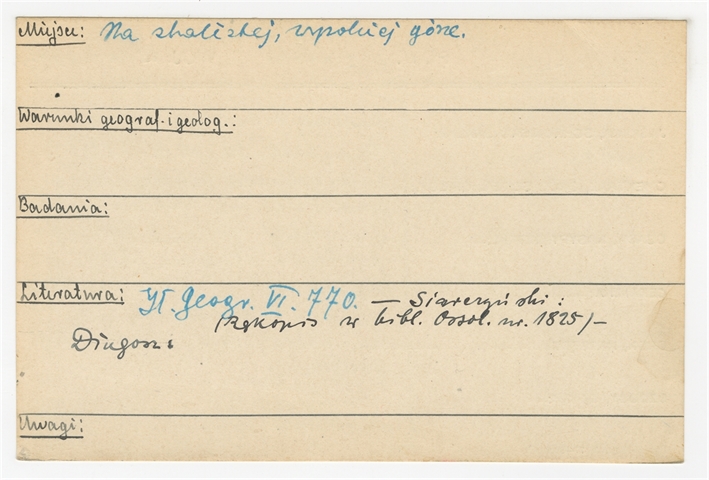 Miejsce: Na skalistej, wysokiej górze.
Warunki geograf. i geolog.:
Badania:
Literatura: Sł. Geogr. VI. 770. — Siarczyński:
(Rękopis w bibl. Ossol. nr. 1825/—
Długosz:
Uwagi: